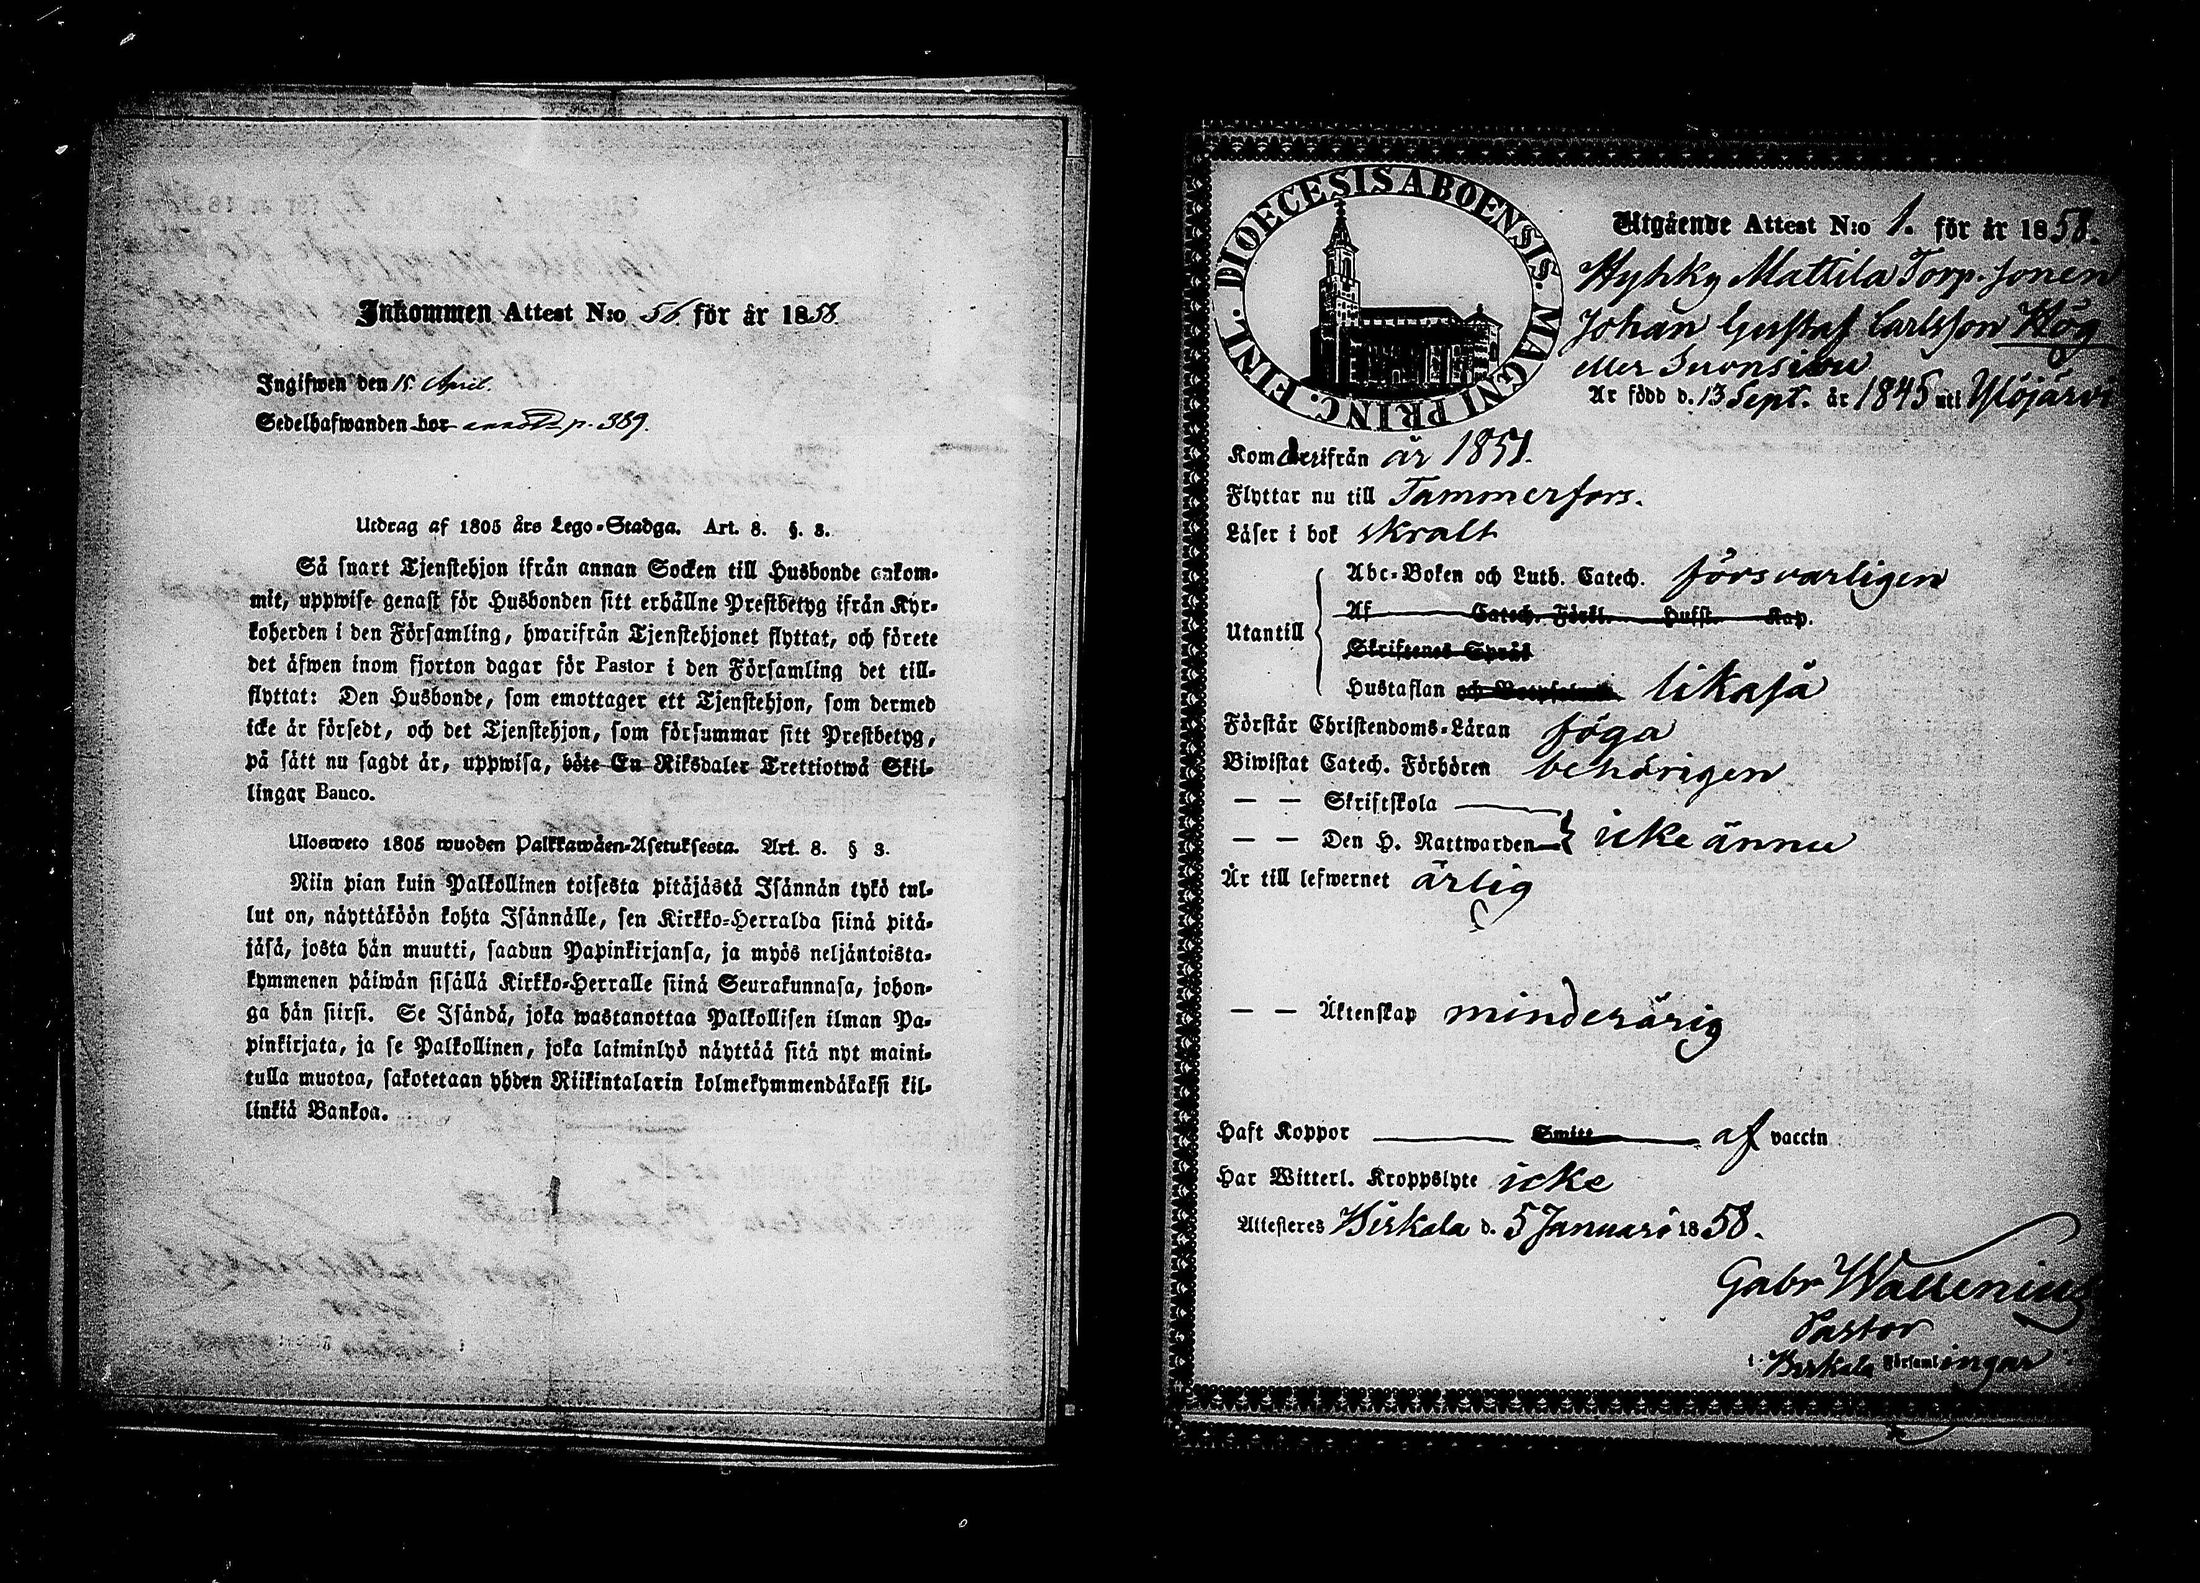 Inkommen Attest N:o 56. för år 1858.
Ingifwen den 15 April.
Sedelhafwanden bor p. 389.
Utdrag af 1805 års Lego-Stadga. Art. 8. §. 3.
Så snart Tjenstehjon ifrån annan Socken till Husbonde ankom-
mit, uppwise genast för Husbonden sitt erhållne Prestbetyg ifrån Kyr-
koherden i den Församling, hwarifrån Tjenstehjonet flyttat, och förete
det äfwen inom fjorton dagar för Pastor i den Församling det till-
flyttat: Den Husbonde, som emottager ett Tjenstehjon, som dermed
icke är försedt, och det Tjenstehjon, som försummar sitt Prestbetyg,
på sätt nu sagdt är, uppwisa, böte En Riksdaler Trettiotwå Skil-
lingar Banco.
Ulosweto 1805 wuoden Palkkawäen-Asetuksesta. Art. 8. § 3.
Niin pian kuin Palkollinen toisesta pitäjästä Isännän tykö tul-
lut on, näyttäköön kohta Isännälle, sen Kirkko-Herralda siinä pitä-
jäsä, josta hän muutti, saadun Papinkirjansa, ja myös neljäntoista-
kymmenen päiwän sisällä Kirkko-Herralle siinä Seurakunnasa, johon-
ga hän siirsi. Se Isändä, joka wastanottaa Palkollisen ilman Pa-
pinkirjata, ja se Palkollinen, joka laiminlyö näyttää sitä nyt maini-
tulla muotoa, sakotetaan yhden Riikintalarin kolmekymmendäkaksi kil-
linkiä Bankoa.
FINL. DIOECESIS ABOENSIS. MAGNI PRINC.
Utgående Attest N:o 1. för år 1858.
Hyhky Mattila Torp. sonen
Johan Gustaf Carlsson Hög
eller Suonsivu
Är född d. 13 Sept. år 1845 uti Ylöjärvi
Kom derifrån år 1851.
Flyttar nu till Tammerfors.
Läser i bok skralt
Utantill
Abc-Boken och Luth. Catech. försvarligen
Af Catech. Förkl. Hufst. Kap.
Skriftenes Språk
Hustaflan och likaså
Förstår Christendoms-Läran föga
Biwistat Catech. Förhören behörigen
— — Skriftskola
— — Den H. Nattwarden icke ännu
Är till lefwernet ärlig
— — Äktenskap minderårig
Haft Koppor Smitt af vaccin
Har Witterl. Kroppslyte icke
Attesteres Birkala d. 5 Januari 1858.
Gabr Wallenius
Pastor
i Birkala Församlingar